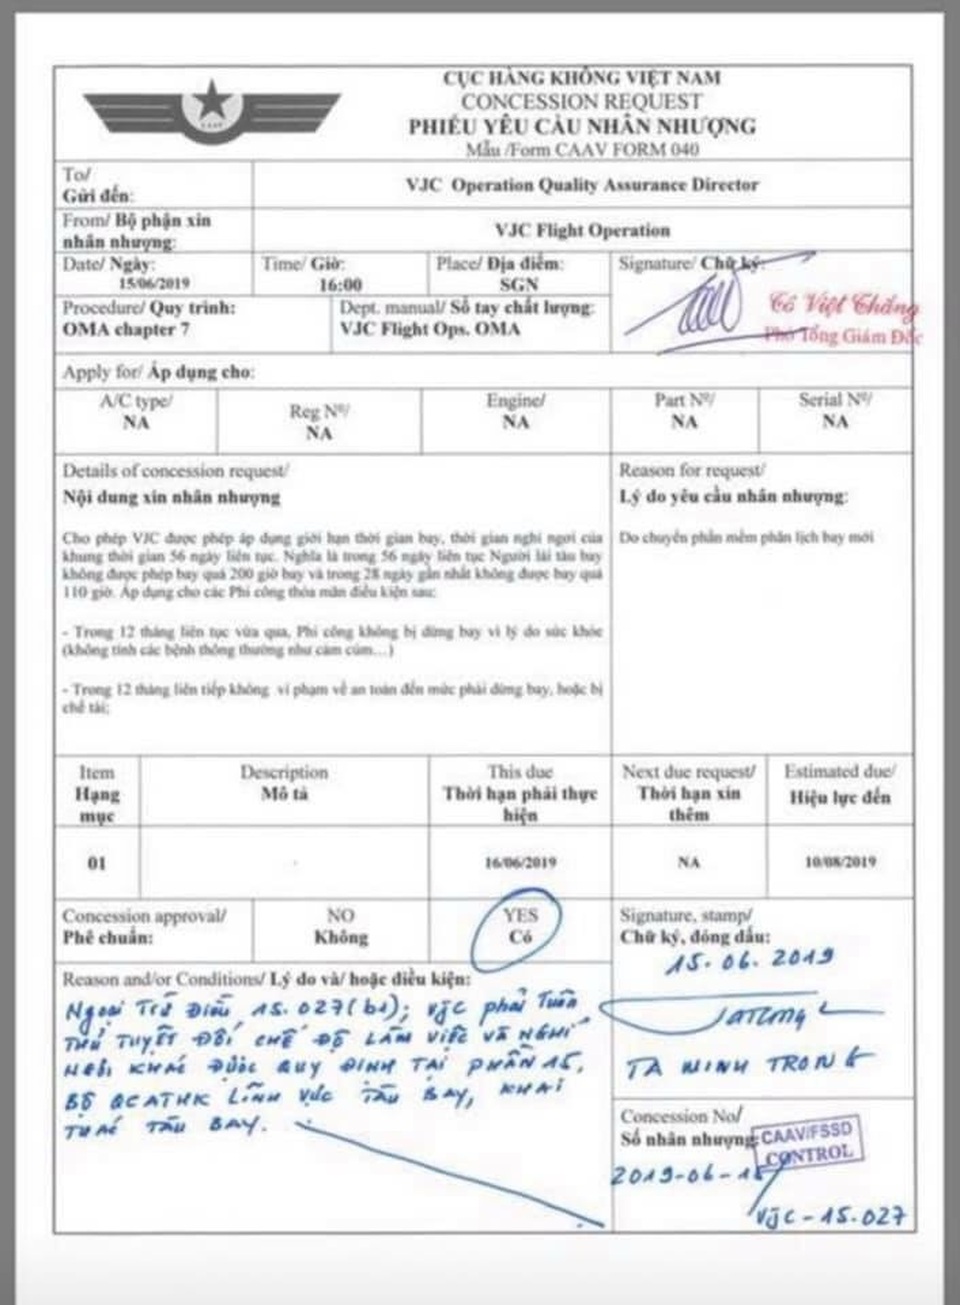 CỤC HÀNG KHÔNG VIỆT NAM
CONCESSION REQUEST
PHIẾU YÊU CẦU NHÂN NHƯỢNG
Mẫu /Form CAAV FORM 040
To/
Gửi đến:
VJC Operation Quality Assurance Director
From/ Bộ phận xin
nhân nhượng:
VJC Flight Operation
Date/ Ngày:
15/06/2019
Time/ Giờ:
16:00
Place/ Địa điểm:
SGN
Signature/ Chữ ký:
Tô Việt Thắng
Phó Tổng Giám Đốc
Procedure/ Quy trình:
OMA chapter 7
Dept. manual/ Sổ tay chất lượng:
VJC Flight Ops. OMA
Apply for/ Áp dụng cho:
A/C type/
NA
Reg Nº/
NA
Engine/
NA
Part Nº/
NA
Serial Nº/
NA
Details of concession request/
Nội dung xin nhân nhượng
Cho phép VJC được phép áp dụng giới hạn thời gian bay, thời gian nghỉ ngơi của
khung thời gian 56 ngày liên tục. Nghĩa là trong 56 ngày liên tục Người lái tàu bay
không được phép bay quá 200 giờ bay và trong 28 ngày gần nhất không được bay quá
110 giờ. Áp dụng cho các Phi công thỏa mãn điều kiện sau:
- Trong 12 tháng liên tục vừa qua, Phi công không bị dừng bay vì lý do sức khỏe
(không tính các bệnh thông thường như cảm cúm...)
- Trong 12 tháng liên tiếp không vi phạm về an toàn đến mức phải dừng bay, hoặc bị
chế tài;
Reason for request/
Lý do yêu cầu nhân nhượng:
Do chuyển phần mềm phân lịch bay mới
Item
Hạng
mục
Description
Mô tả
This due
Thời hạn phải thực
hiện
Next due request/
Thời hạn xin
thêm
Estimated due/
Hiệu lực đến
01
16/06/2019
NA
10/08/2019
Concession approval/
Phê chuẩn:
NO
Không
YES
Có
Signature, stamp/
Chữ ký, đóng dấu:
15.06.2019
TA MINH TRONG
Reason and/or Conditions/ Lý do và/ hoặc điều kiện:
Ngoại Trừ Điều 15.027(b1); VJC phải Tuân
THỦ TUYỆT ĐỐI CHẾ ĐỘ LÀM VIỆC VÀ NGHỈ
NGƠI KHÁC ĐƯỢC QUY ĐỊNH TẠI PHẦN 15,
BỘ QCATHK LĨNH VỰC TÀU BAY, KHAI
THÁC TÀU BAY.
Concession No/
Số nhân nhượng:
CAAV/FSSD
CONTROL
2019-06-15/
VJC-15.027